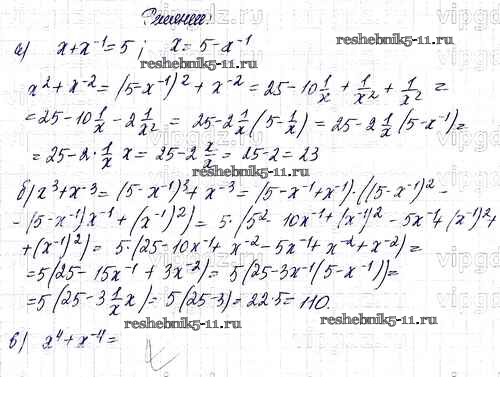 Решение.
а) x+x⁻¹=5; x=5-x⁻¹
x²+x⁻²=(5-x⁻¹)²+x⁻²=25-10 1/x + 1/x² + 1/x² =
=25-10 1/x -2 1/x² = 25-2 1/x (5-1/x) = 25-2 1/x (5-x⁻¹)=
=25-2·1/x x=25-2 x/x=25-2=23
б) x³+x⁻³=(5-x⁻¹)³+x⁻³=(5-x⁻¹+x⁻¹)·((5-x⁻¹)²-
-(5-x⁻¹)x⁻¹+(x⁻¹)²)= 5·(5²-10x⁻¹+(x⁻¹)²-5x⁻¹+(x⁻¹)²+
+(x⁻¹)²)= 5·(25-10x⁻¹+x⁻²-5x⁻¹+x⁻²+x⁻²)=
=5(25-15x⁻¹+3x⁻²)= 5(25-3x⁻¹(5-x⁻¹))=
=5(25-3 1/x x)=5(25-3)=22·5=110.
в) x⁴+x⁻⁴=
reshebnik5-11.ru
reshebnik5-11.ru
reshebnik5-11.ru
reshebnik5-11.ru
vipgdz
vipgdz
vipgdz